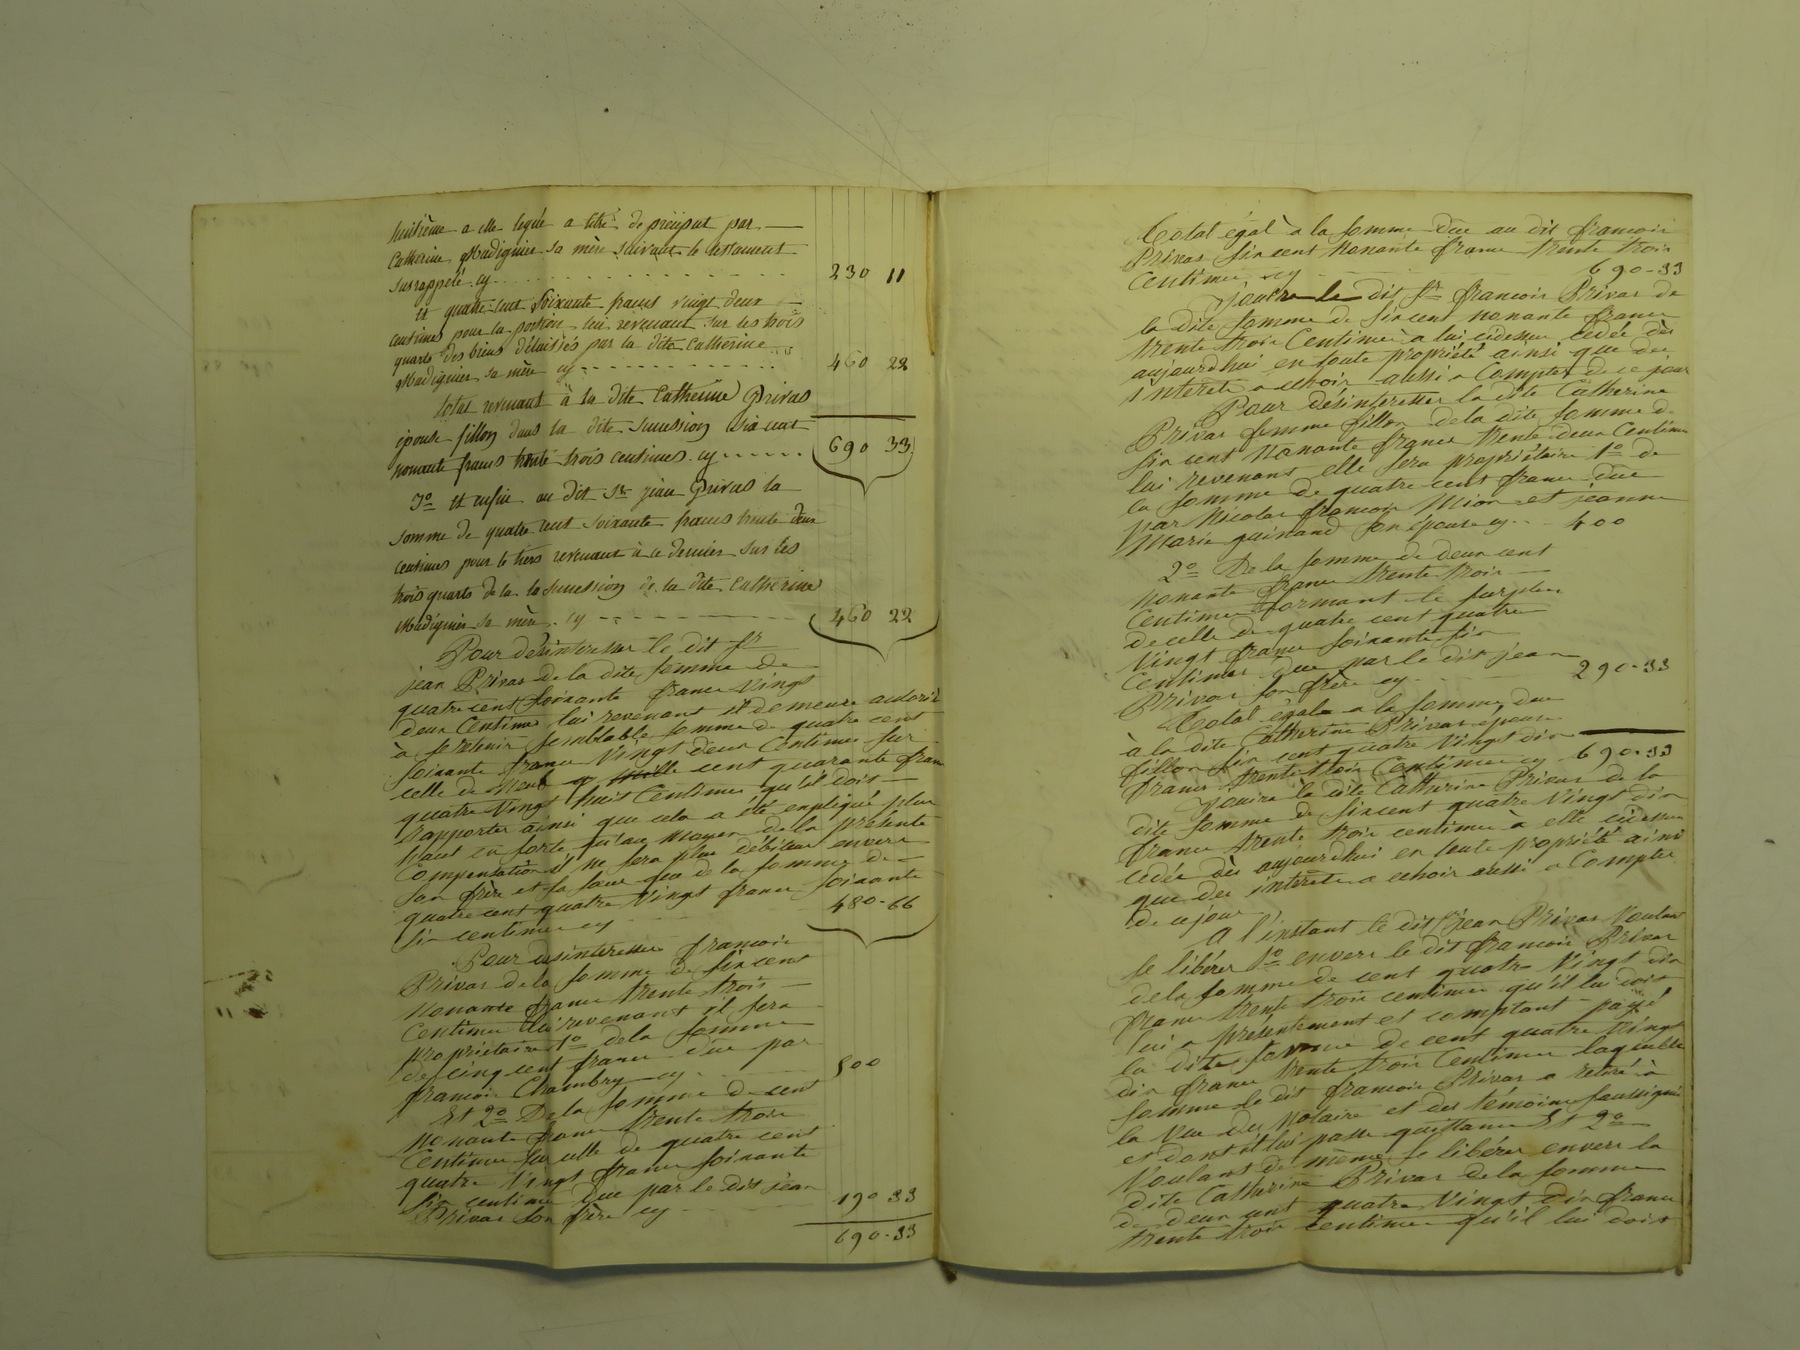 huitième a elle leguée a titre de préciput par
Catherine Madignier sa mère suivant le testament
susrappelé. cy 230 11
et quatre cent soixante francs vingt deux
centimes pour la portion lui revenant sur les trois
quarts des biens délaissés par la dite Catherine
Madignier sa mère cy 460 22
total revenant à la dite Catherine Privas
épouse fillon dans la dite succession six cent
nonante francs trente trois centimes. cy 690 33
3o et enfin au dit Sr jean Privas la
somme de quatre cent soixante francs trente deux
centimes pour le tiers revenant à ce dernier sur les
trois quarts de la succession de la dite Catherine
Madignier sa mère. cy 460 22
Pour désintéresser le dit Sr
jean Privas de la dite somme de
quatre cent soixante francs vingt
deux Centimes lui revenant il demeure autorisé
à se retenir semblable somme de quatre cent
soixante francs vingt deux Centimes sur
celle de neuf cent quarante francs
quatre vingt huit Centimes qu'il doit
rapporter ainsi que cela a été expliqué plus
haut en sorte qu'au moyen de la présente
Compensation il ne sera plus débiteur envers
son frère et sa sœur que de la somme de
quatre cent quatre vingt francs soixante
six centimes cy 480-66
Pour désintéresser françois
Privas de la somme de six cent
Nonante francs trente trois
Centimes lui revenant il sera
propriétaire 1o de la somme
de cinq cent francs due par
françois Chambry cy 500
Et 2o De la somme de cent
Nonante francs trente trois
Centimes sur celle de quatre cent
quatre vingt francs soixante
six centimes due par le dit jean
Privas son frère cy 190 33
690-33
Total égal à la somme due au dit françois
Privas six cent nonante francs trente trois
Centimes cy 690-33
Jouira le dit Sr françois Privas de
la dite somme de six cent nonante francs
trente trois Centimes à lui cidessus cédée dès
aujourdhui en toute propriété ainsi que des
interets a echoir aussi a Compter de ce jour
Pour désintéresser la dite Catherine
Privas femme fillon de la dite somme de
six cent Nonante francs trente deux Centimes
lui revenant elle sera propriétaire 1o de
la somme de quatre cent francs due
par Nicolas françois Mion et jeanne
Marie guinand son épouse cy 400
2o De la somme de deux cent
nonante francs trente trois
Centimes formant le surplus
de celle de quatre cent quatre
vingt francs soixante six
Centimes due par le dit jean
Privas son frère cy 290-33
Total égale a la somme due
à la dite Catherine Privas épouse
fillon six cent quatre vingt dix
francs trente trois Centimes cy 690-33
Jouira la dite Catherine Privas de la
dite somme de six cent quatre vingt dix
francs trente trois centimes à elle cidessus
cédée dès aujourdhui en toute propriété ainsi
que des interets a echoir aussi a Compter
de ce jour
A l'instant le dit Sr jean Privas Voulant
se libérer 1o envers le dit françois Privas
de la somme de cent quatre vingt dix
francs trente trois centimes qu'il lui doit
lui a présentement et comptant payé
la dite somme de cent quatre vingt
dix francs trente trois Centimes laquelle
somme le dit françois Privas a retiré à
la vue du Notaire et des témoins soussignés
et dont il lui passe quittance Et 2o
Voulant de même se libérer envers la
dite Catherine Privas de la somme
de deux cent quatre vingt dix francs
trente trois centimes qu'il lui doit